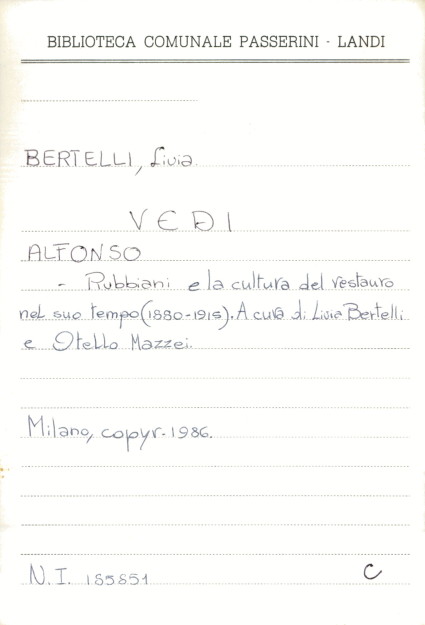 BIBLIOTECA COMUNALE PASSERINI - LANDI
BERTELLI, Livia.
VEDI
ALFONSO
- Rubbiani e la cultura del restauro
nel suo tempo (1880-1915). A cura di Livia Bertelli
e Otello Mazzei.
Milano, copyr. 1986.
N.I. 185851 C